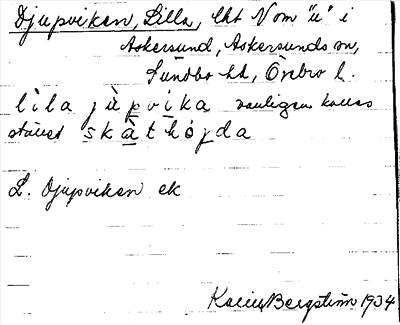 Djupviken, Lilla, lht N om "u" i
Askersund, Askersunds sn,
Sundbo hd, Örebro l.
lìla jùpvika vanligen kallas
stället skàthöjda
L. Djupviken ek
Bergström 1934